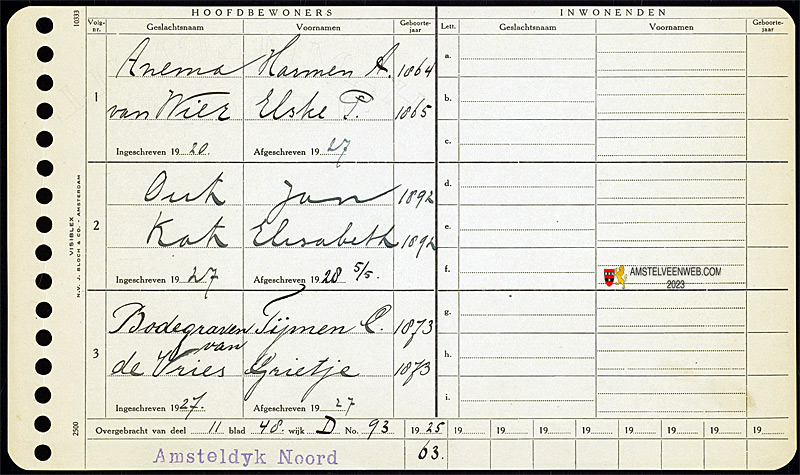 HOOFDBEWONERS INWONENDEN
Volg-nr. Geslachtsnaam Voornamen Geboorte-jaar Lett. Geslachtsnaam Voornamen Geboorte-jaar
10333
1
Anema Harmen A. 1864
van Wier Elske P. 1865
Ingeschreven 1920. Afgeschreven 1927
a.
b.
c.
2
Ouk Jan 1892
Kok Elisabeth 1892
Ingeschreven 1927 Afgeschreven 1928 5/5.
d.
e.
f.
AMSTELVEENWEB.COM
2023
VISIBLEX
N.V. J. BLOCH & CO. - AMSTERDAM
3
Bodegraven Tijmen C. 1873
van
de Vries Grietje 1873
Ingeschreven 1927. Afgeschreven 1927
g.
h.
i.
2500
Overgebracht van deel 11 blad 48. wijk D No. 93 1925 19 19 19 19 19 19 19 19
Amsteldyk Noord 63.